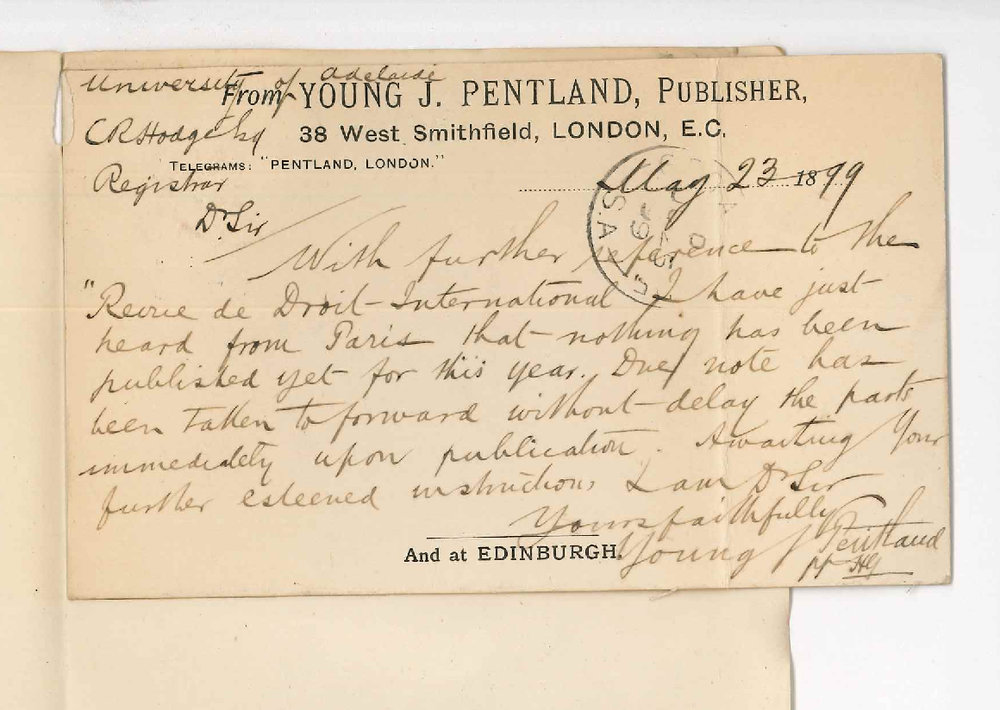 University of Adelaide
From YOUNG J. PENTLAND, PUBLISHER,
C R Hodge Esq
38 West Smithfield, LONDON, E.C.
TELEGRAMS: "PENTLAND, LONDON."
Registrar
May 23 1899
Dr Sir
With further reference to the
"Revue de Droit International I have just
heard from Paris that nothing has been
published yet for this year. Due note has
been taken to forward without delay the parts
immediately upon publication. Awaiting Your
further esteemed instructions I am Dr Sir
Yours faithfully
Young J Pentland
And at EDINBURGH.
pp HG
S.A